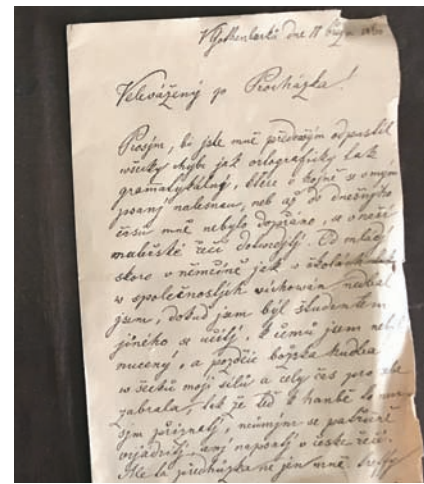 V Gothenburku dne 11 března
Velevážený po Procházka!
Prosým, bi jste mně předewším odpustil
wšecky chibi jak ortografiky tak
gramatykálný, které v hojně se v mym
psaný nalesnau, neb až do dnešnýho
času mně nebylo dopřáno, a v neší
mateřské řečí dotwrdytj. Od mládí
skoro v němčině jak v školách
w společnostjch wichowán nedbal
jsem, dokud jsem býl študentem
jiného se učitj, k čemů jsem nebil
nucený, a pozděic božska hudba
w šecků moji silů a celý čas pro sebe
zabrala, tak že teď k hanbě to mu
sjm přiznatj, neůmjm se patřičně
wijádřitj anj nepsatj v české řeči.
Ale ta předcházka ne jen mně